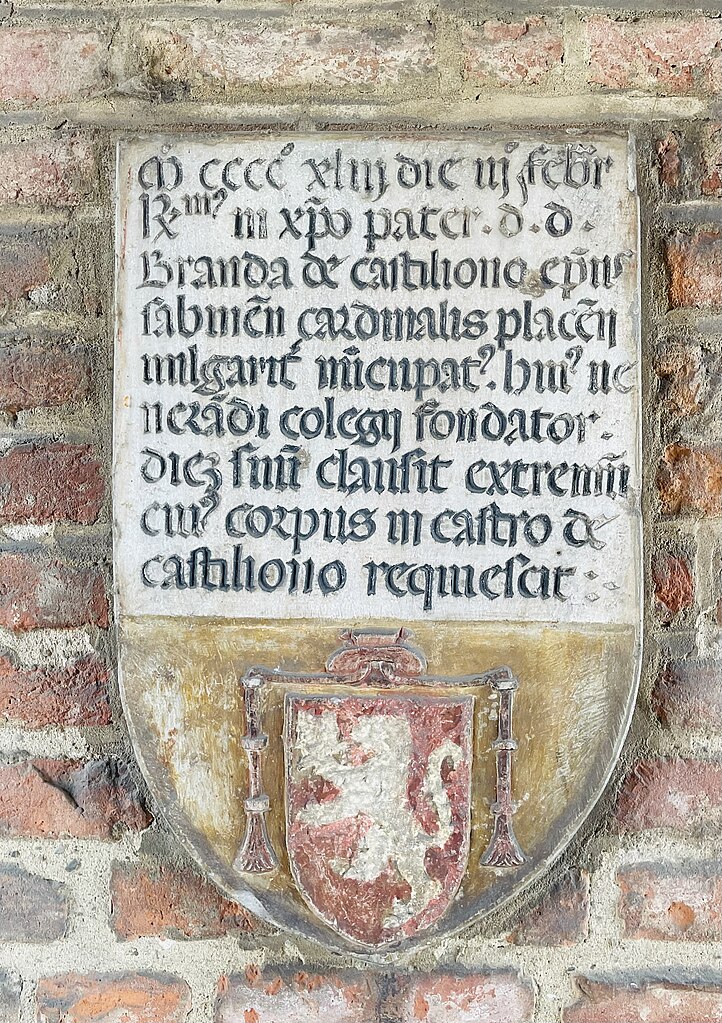 M cccc xliij die iij febr̄
R̄mꝰ in xp̄o pater . d . d .
Branda de castiliono ep̄usˢ
sabineñ cardinalis placēti
nuncupatꝰ . huiꝰ ve
nerādi colegij fondator .
diēꝫ suū clausit extremū
cuiꝰ corpus in castro de
castiliono requiescit